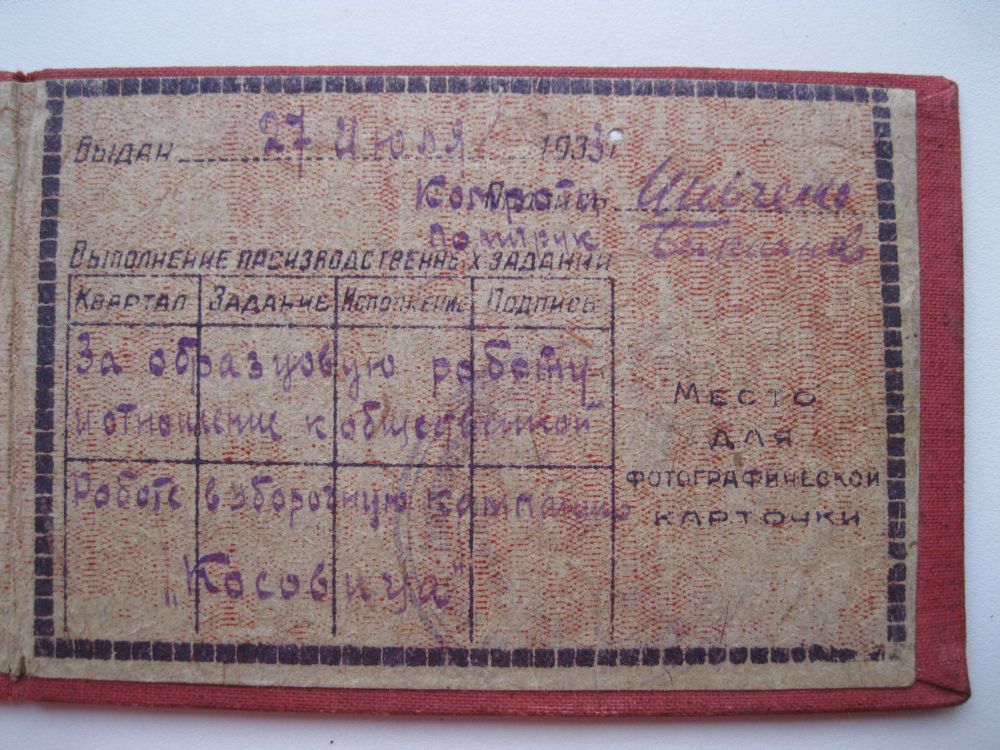 Выдан 27 Июля 1933 г
Комроты Подпись
Политрук
Выполнение производственных заданий
Квартал Задание Исполнение Подпись
За образцовую работу
и отношение к общественной
Работе в уборочную кампанию
„Косовица“
Место
для
фотографической
карточки